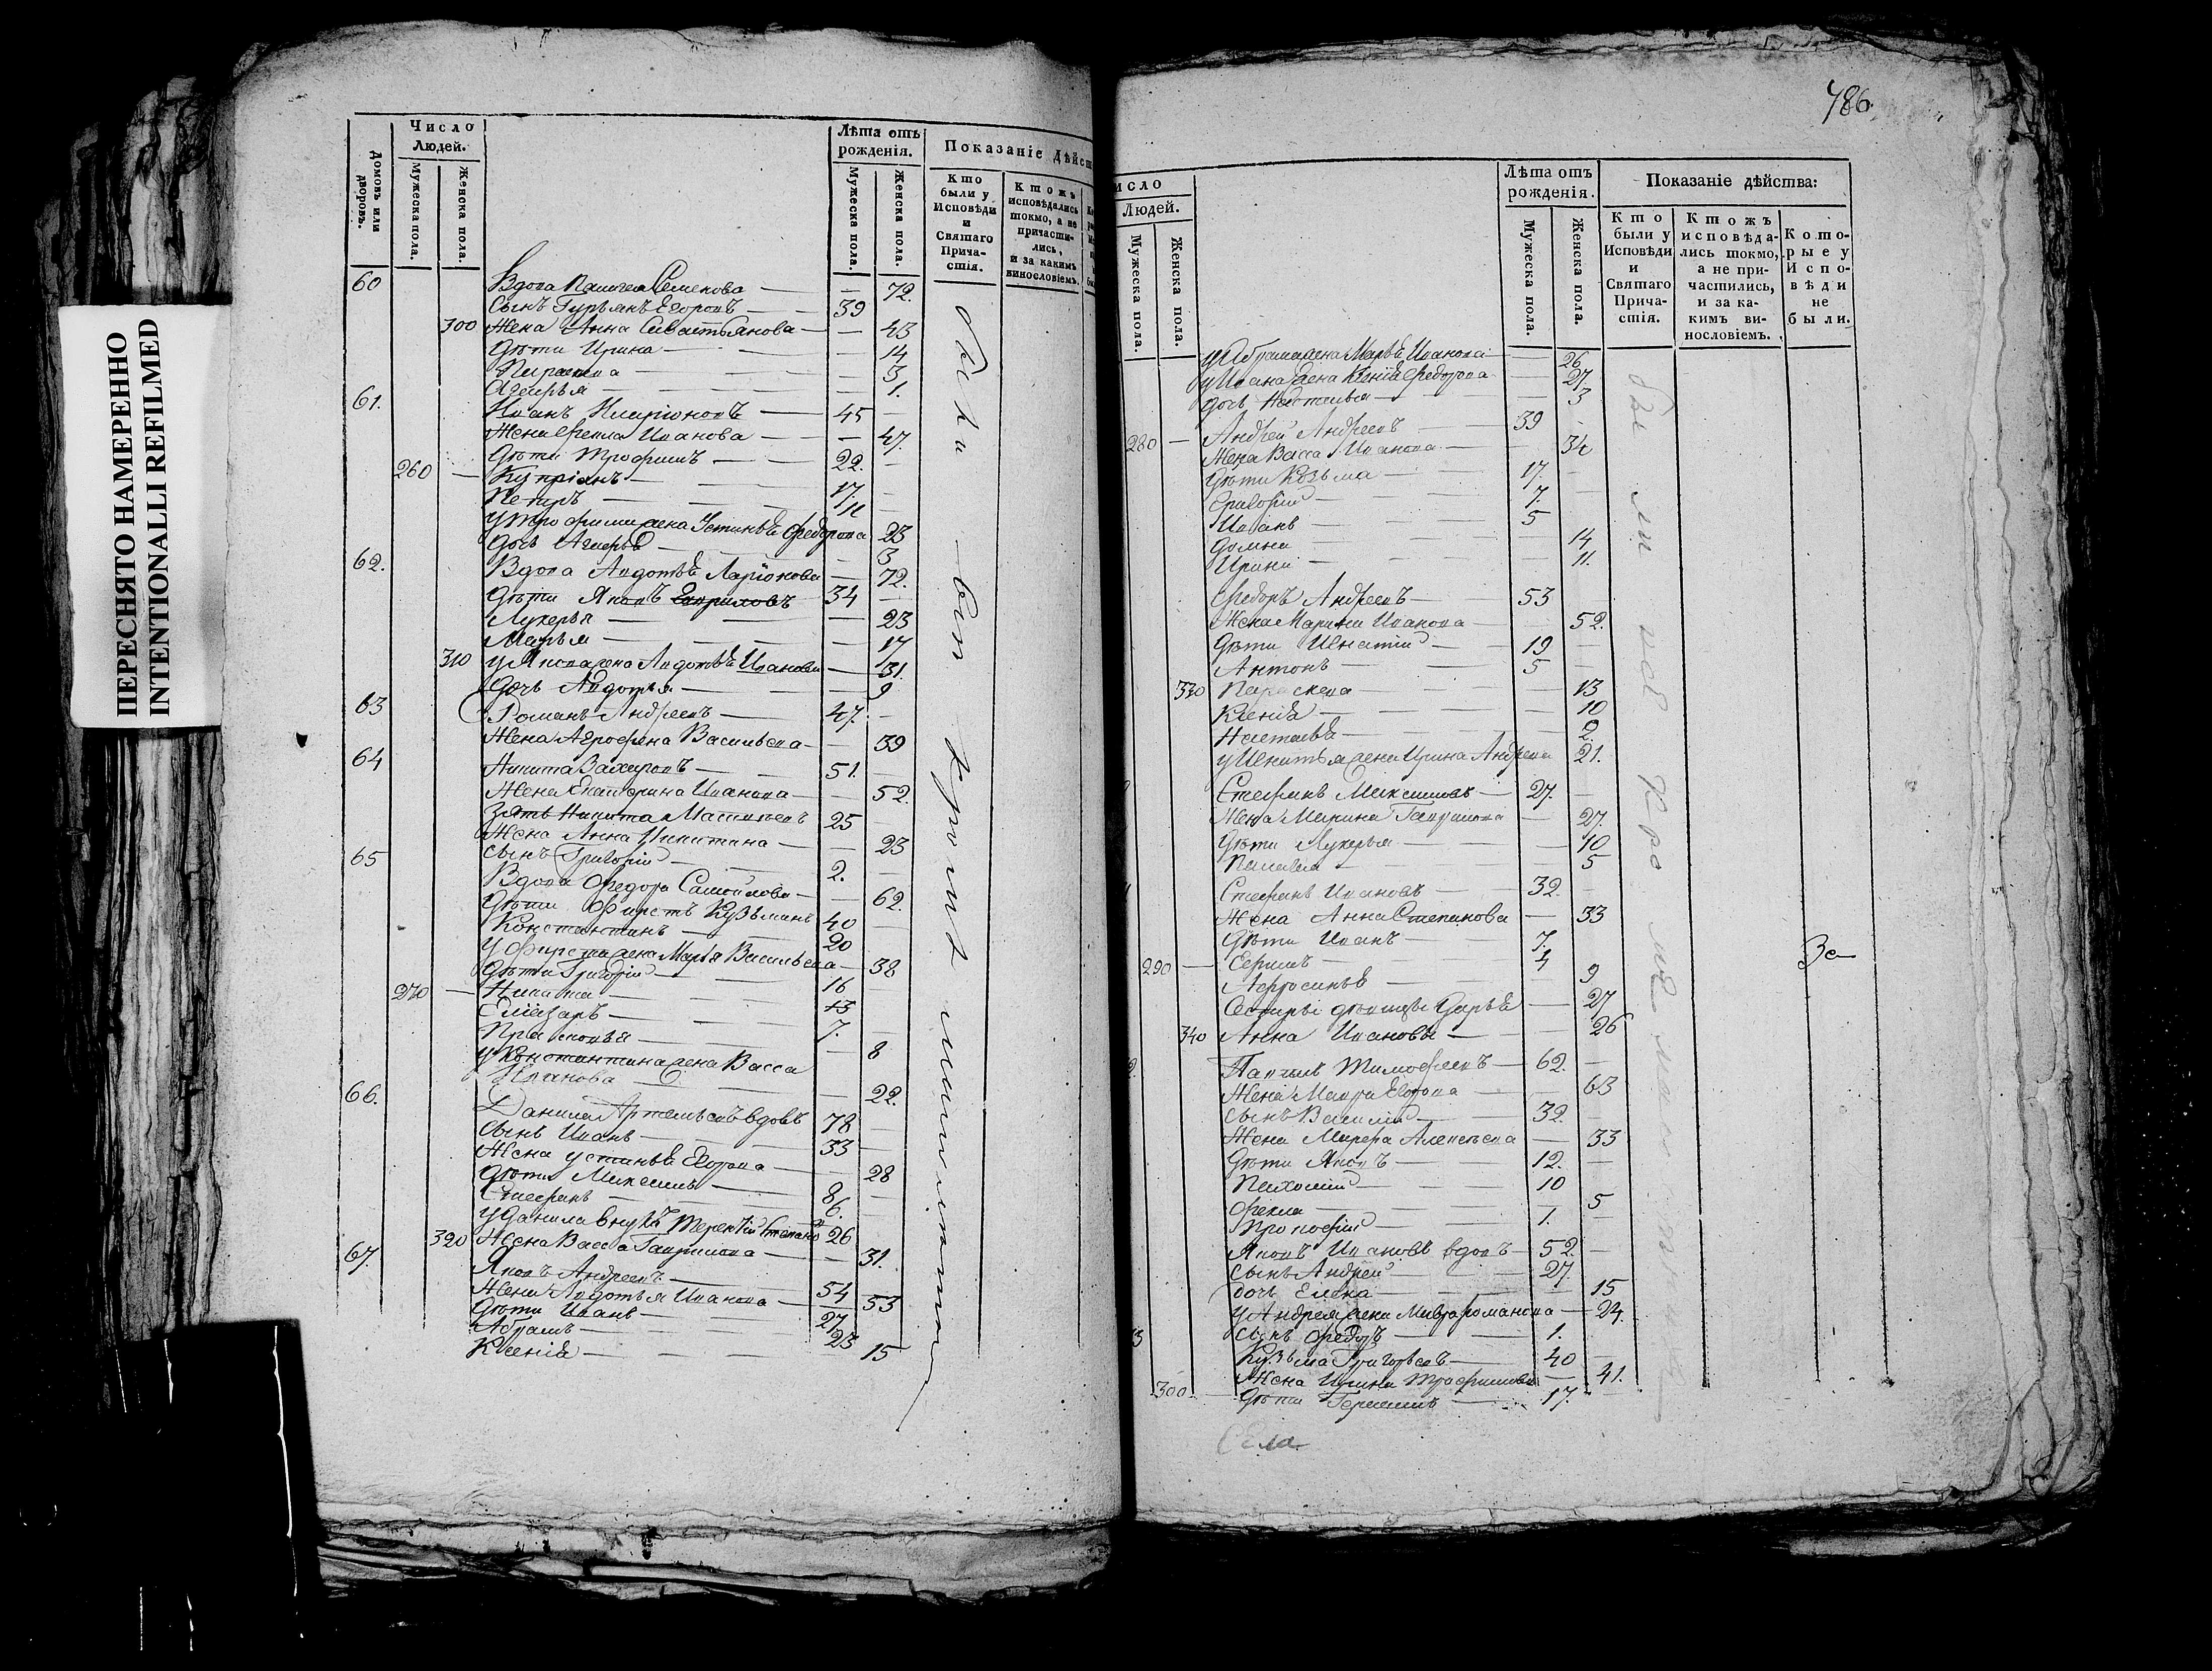 ПЕРЕСНЯТО НАМЕРЕННО
INTENTIONALLI REFILMED
Домовъ или дворовъ.
Число Людей.
Мужеска пола.
Женска пола.
Лѣта отъ рожденія.
Мужеска пола.
Женска пола.
Показаніе дѣйст
Кто были у Исповѣди и Святаго Причастія.
Ктожъ исповѣдались токмо, а не причастились, и за какимъ винословіемъ.
60 Вдова Семенова — 72.
Сынъ Гурьянъ Егоровъ — 39
300 Жена Анна Севастьянова — 43
Дѣти Ирина — 14
— 3
— 1.
61. Иванъ — 45
Жена Фекла Иванова — 47.
Дѣти Трофимъ — 22.
260 Купріянъ — 17
Петръ — 11
у Трофима жена Устинья Федорова 23
Дочь — 3
62. Вдова Авдотья Ларіонова — 72.
Дѣти Яковъ Гавриловъ 34
Лукерья — 23
Марья — 17
310 у Якова жена Авдотья Иванова — 31.
Дочь Авдотья — 9
63 Романъ Андреевъ — 47.
Жена Васильева — 39
64 Никита Захаровъ — 51.
Жена Екатерина Иванова — 52.
Зять Никита 25
Жена Анна Никитина — 23
Сынъ Григорій — 2.
65 Вдова Федора Самойлова — 62.
Дѣти Фирстъ Кузьминъ 40
Константинъ — 20
у Фирста жена Марья Васильева — 38
Дѣти Григорій — 16
270 Никита — 13
Елизаръ — 7.
Прасковья — 8
у Константина жена Васса
Иванова — 22.
66. Данила Артемьевъ вдовъ 78
Сынъ Иванъ — 33
Жена Устинья Егорова — 28
Дѣти Максимъ — 8
Стефанъ — 6.
у Данила внукъ Терентій 26
320 Жена Васса Гаврилова — 31.
67. Яковъ Андреевъ — 54
Жена Авдотья Иванова — 53
Дѣти Иванъ — 27
Абрамъ — 23
Ксенія — 15
486.
исло
Людей.
Мужеска пола.
Женска пола.
Лѣта отъ рожденія.
Мужеска пола.
Женска пола.
Показаніе дѣйства:
Кто были у Исповѣди и Святаго Причастія.
Ктожъ исповѣдались токмо, а не причастились, и за какимъ винословіемъ.
Которые у Исповѣди не были.
у Абрама жена Марья Иванова — 26
у Ивана жена Ксенія Федорова — 27
дочь Наталья — 3
Андрей Андреевъ — 39
280 Жена Васса Иванова — 34
Дѣти Козьма — 17.
Григорій — 7.
Иванъ — 5
Домна — 14
Ирина — 11.
Федоръ Андреевъ — 53
Жена Марина Иванова — 52.
Дѣти Игнатій — 19
Антонъ — 5
330 Параскева — 13
Ксенія — 10
Наталья — 2.
у Игнатья жена Ирина Андреева 21.
Стефанъ Максимовъ — 27.
Жена Марина Гаврилова — 27.
Дѣти Лукерья — 10
— 5
Стефанъ Ивановъ — 32.
Жена Анна Степанова — 33
Дѣти Иванъ — 7.
290 — 4
Афросинья — 9
Сестры дѣвицы Дарья — 27
340 Анна Ивановы — 26
Тимофеевъ — 62.
Жена Мавра Егорова — 63
Сынъ Василій — 32.
Жена Алексѣева — 33
Дѣти Яковъ — 12.
Пахомій — 10
Фекла — 5
Прокофій — 1.
Яковъ Ивановъ вдовъ — 52.
Сынъ Андрей — 27
дочь Елена — 15
у Андрея жена Мавра Романова — 24.
Сынъ Федоръ — 1.
Кузьма Григорьевъ — 40
Жена Ирина Трофимова — 41.
300 Дѣти Герасимъ — 17.